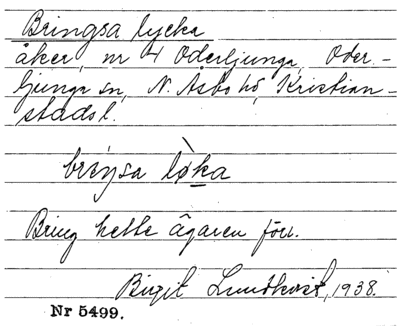 Bringsa lycka
åker, nr 4 Oderljunga, Oder-
ljunga sn, N. Åsbo hd, Kristian-
stads l.
Bring hette ägaren förr.
Birgit Lundkvist, 1938.
Nr 5499.